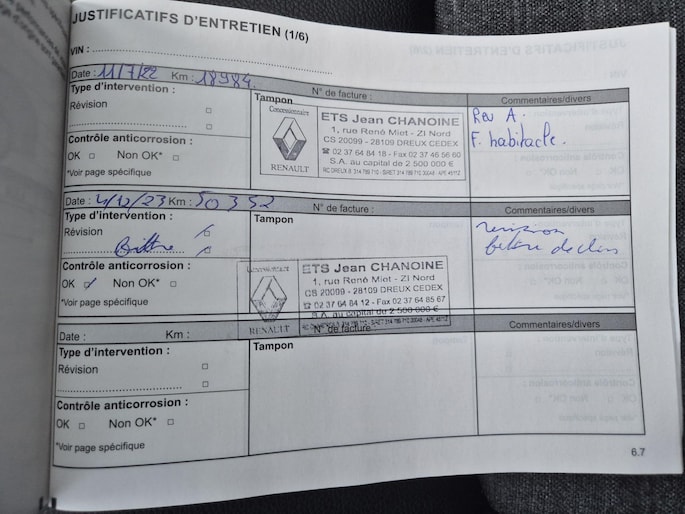 JUSTIFICATIFS D'ENTRETIEN (1/6)
VIN :
Date : 11/7/22 Km : 18984.
N° de facture :
Type d'intervention :
Tampon
Commentaires/divers
Révision
Concessionnaire
RENAULT
ETS Jean CHANOINE
1, rue René Miet - ZI Nord
CS 20099 - 28109 DREUX CEDEX
☎ 02 37 64 84 18 - Fax 02 37 46 56 60
S.A. au capital de 2 500 000 €
Rev A.
F. habitacle.
Contrôle anticorrosion :
OK Non OK*
*Voir page spécifique
Date : 4/12/23 Km : 50352
N° de facture :
Type d'intervention :
Tampon
Commentaires/divers
Révision
revision
Contrôle anticorrosion :
OK Non OK*
*Voir page spécifique
Concessionnaire
RENAULT
ETS Jean CHANOINE
1, rue René Miet - ZI Nord
CS 20099 - 28109 DREUX CEDEX
☎ 02 37 64 84 12 - Fax 02 37 64 85 67
S.A. au capital de 2 500 000 €
Date : Km :
N° de facture :
Type d'intervention :
Tampon
Commentaires/divers
Révision
Contrôle anticorrosion :
OK Non OK*
*Voir page spécifique
6.7